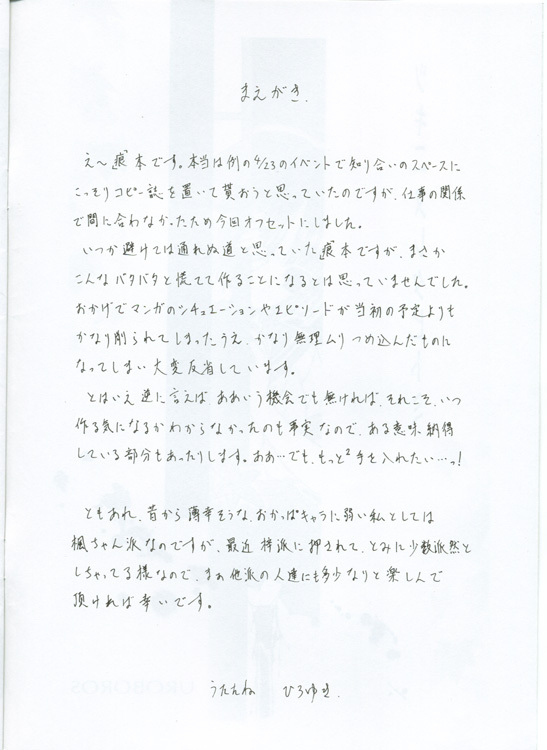 まえがき.
え〜痕本です。本当は例の4/23のイベントで知り合いのスペースに
こっそりコピー誌を置いて貰おうと思っていたのですが、仕事の関係
で間に合わなかったため今回オフセットにしました。
いつか避けては通れぬ道と思っていた痕本ですが、まさか
こんなバタバタと慌てて作ることになるとは思っていませんでした。
おかげでマンガのシチュエーションやエピソードが当初の予定よりも
かなり削られてしまったうえ、かなり無理ムリつめ込んだものに
なってしまい大変反省しています。
とはいえ逆に言えばああいう機会でも無ければ、それこそ、いつ
作る気になるかわからなかったのも事実なので、ある意味納得
している部分もあったりします。ああ…でも、もっと²手を入れたい…っ!
ともあれ、昔から薄幸そうな、おかっぱキャラに弱い私としては
楓ちゃん派なのですが、最近梓派に押されて、とみに少数派然と
しちゃってる様なので、まぁ他派の人達にも多少なりと楽しんで
頂ければ幸いです。
うたたね ひろゆき.
UROBOROS